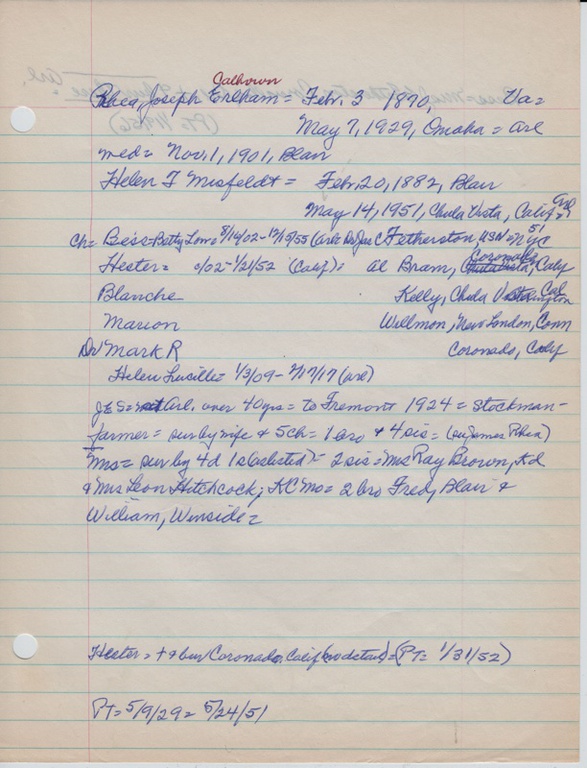 Calhoun
Rhea, Joseph Erlham = Feb. 3 1870, Va =
May 7, 1929, Omaha = Arl
med = Nov. 1, 1901, Blair
Helen F Misfeldt = Feb. 20, 1882, Blair
May 14, 1951, Chula Vista, Calif =
Ch = Bess = Betty Lou = 8/14/02 - 12/15/55 (Arl = Fetherston, USN = NYC
Coronado
Hester = /02 - 1/21/52 (Calif) : Al Bram, Chula Vista, Calif
Blanche Kelly, Chula Vista Cal
Marion Willmon, New London, Conn
Dr Mark R Coronado, Calif
Helen Lucille = 1/3/09 - 7/17/17 (Arl)
J E S = Arl. over 40 yrs = to Fremont 1924 = Stockman -
farmer = sur by wife & 5 ch = 1 bro & 4 sis = (su James Rhea)
Mrs = sur by 4 d 1 s (as listed) = 2 sis = Mrs Ray Brown,
& Mrs Leon Hitchcock; KC Mo = 2 bro Fred, Blair &
William, Winside =
Hester = + & bur Coronado, Calif (no details) = (PT = 1/31/52)
PT = 5/9/29 = 5/24/51